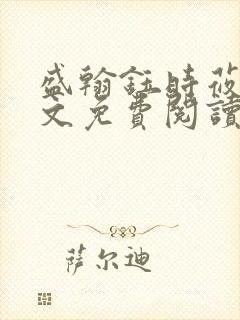 盛翰鈺時莜
文免費閱讀
萨尔迪